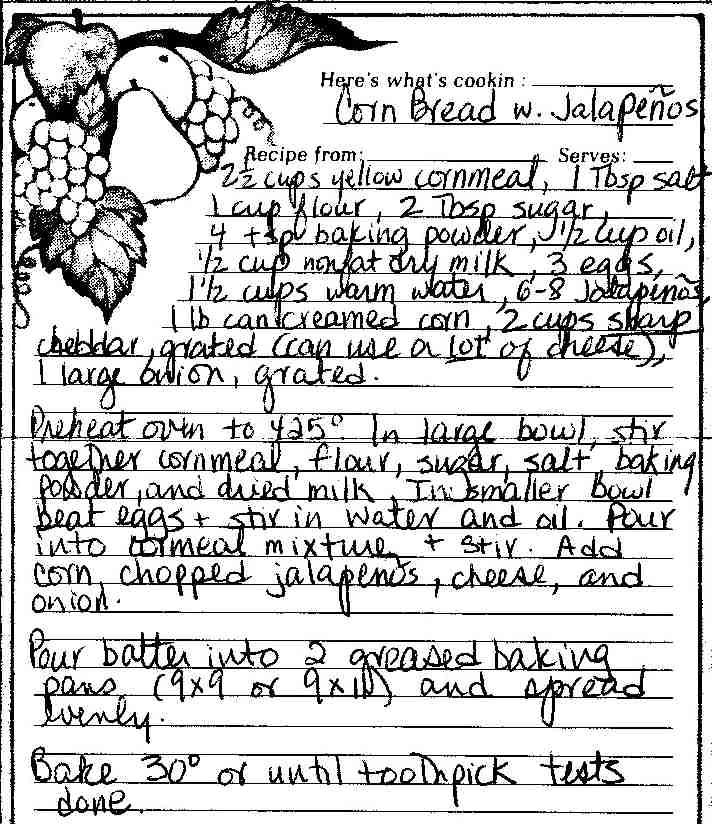 Here's what's cookin :
Corn Bread w. Jalapeños
Recipe from: Serves:
2½ cups yellow cornmeal, 1 Tbsp salt
1 cup flour, 2 Tbsp sugar,
4 tsp baking powder, 1/2 cup oil,
1/2 cup nonfat dry milk, 3 eggs,
1 1/2 cups warm water, 6-8 Jalapeños,
1 lb can creamed corn, 2 cups sharp
cheddar, grated (can use a lot of cheese),
1 large onion, grated.
Preheat oven to 425°. In large bowl, stir
together cornmeal, flour, sugar, salt baking
powder, and dried milk. In smaller bowl
beat eggs + stir in water and oil. Pour
into cornmeal mixture + stir. Add
corn, chopped jalapeños, cheese, and
onion.
Pour batter into 2 greased baking
pans (9x9 or 9x11) and spread
evenly.
Bake 30° or until toothpick tests
done.